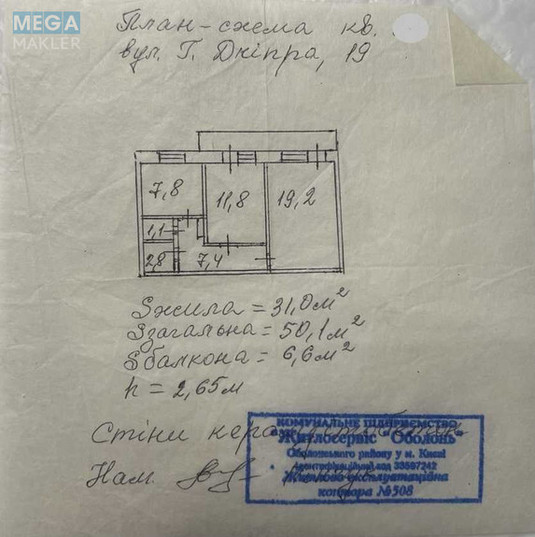 MEGA
MAKLER
План-схема кв.
вул. Г. Дніпра, 19
7,8
11,8
19,2
1,1
2,8
7,4
Sжила = 31,0 м²
Sзагальна = 50,1 м²
Sбалкона = 6,6 м²
h = 2,65 м
Стіни
КОМУНАЛЬНЕ ПІДПРИЄМСТВО
"Житлосервіс "Оболонь"
Оболонського району у м. Києві
Ідентифікаційний код 33597242
Житлово-експлуатаційна
контора №508